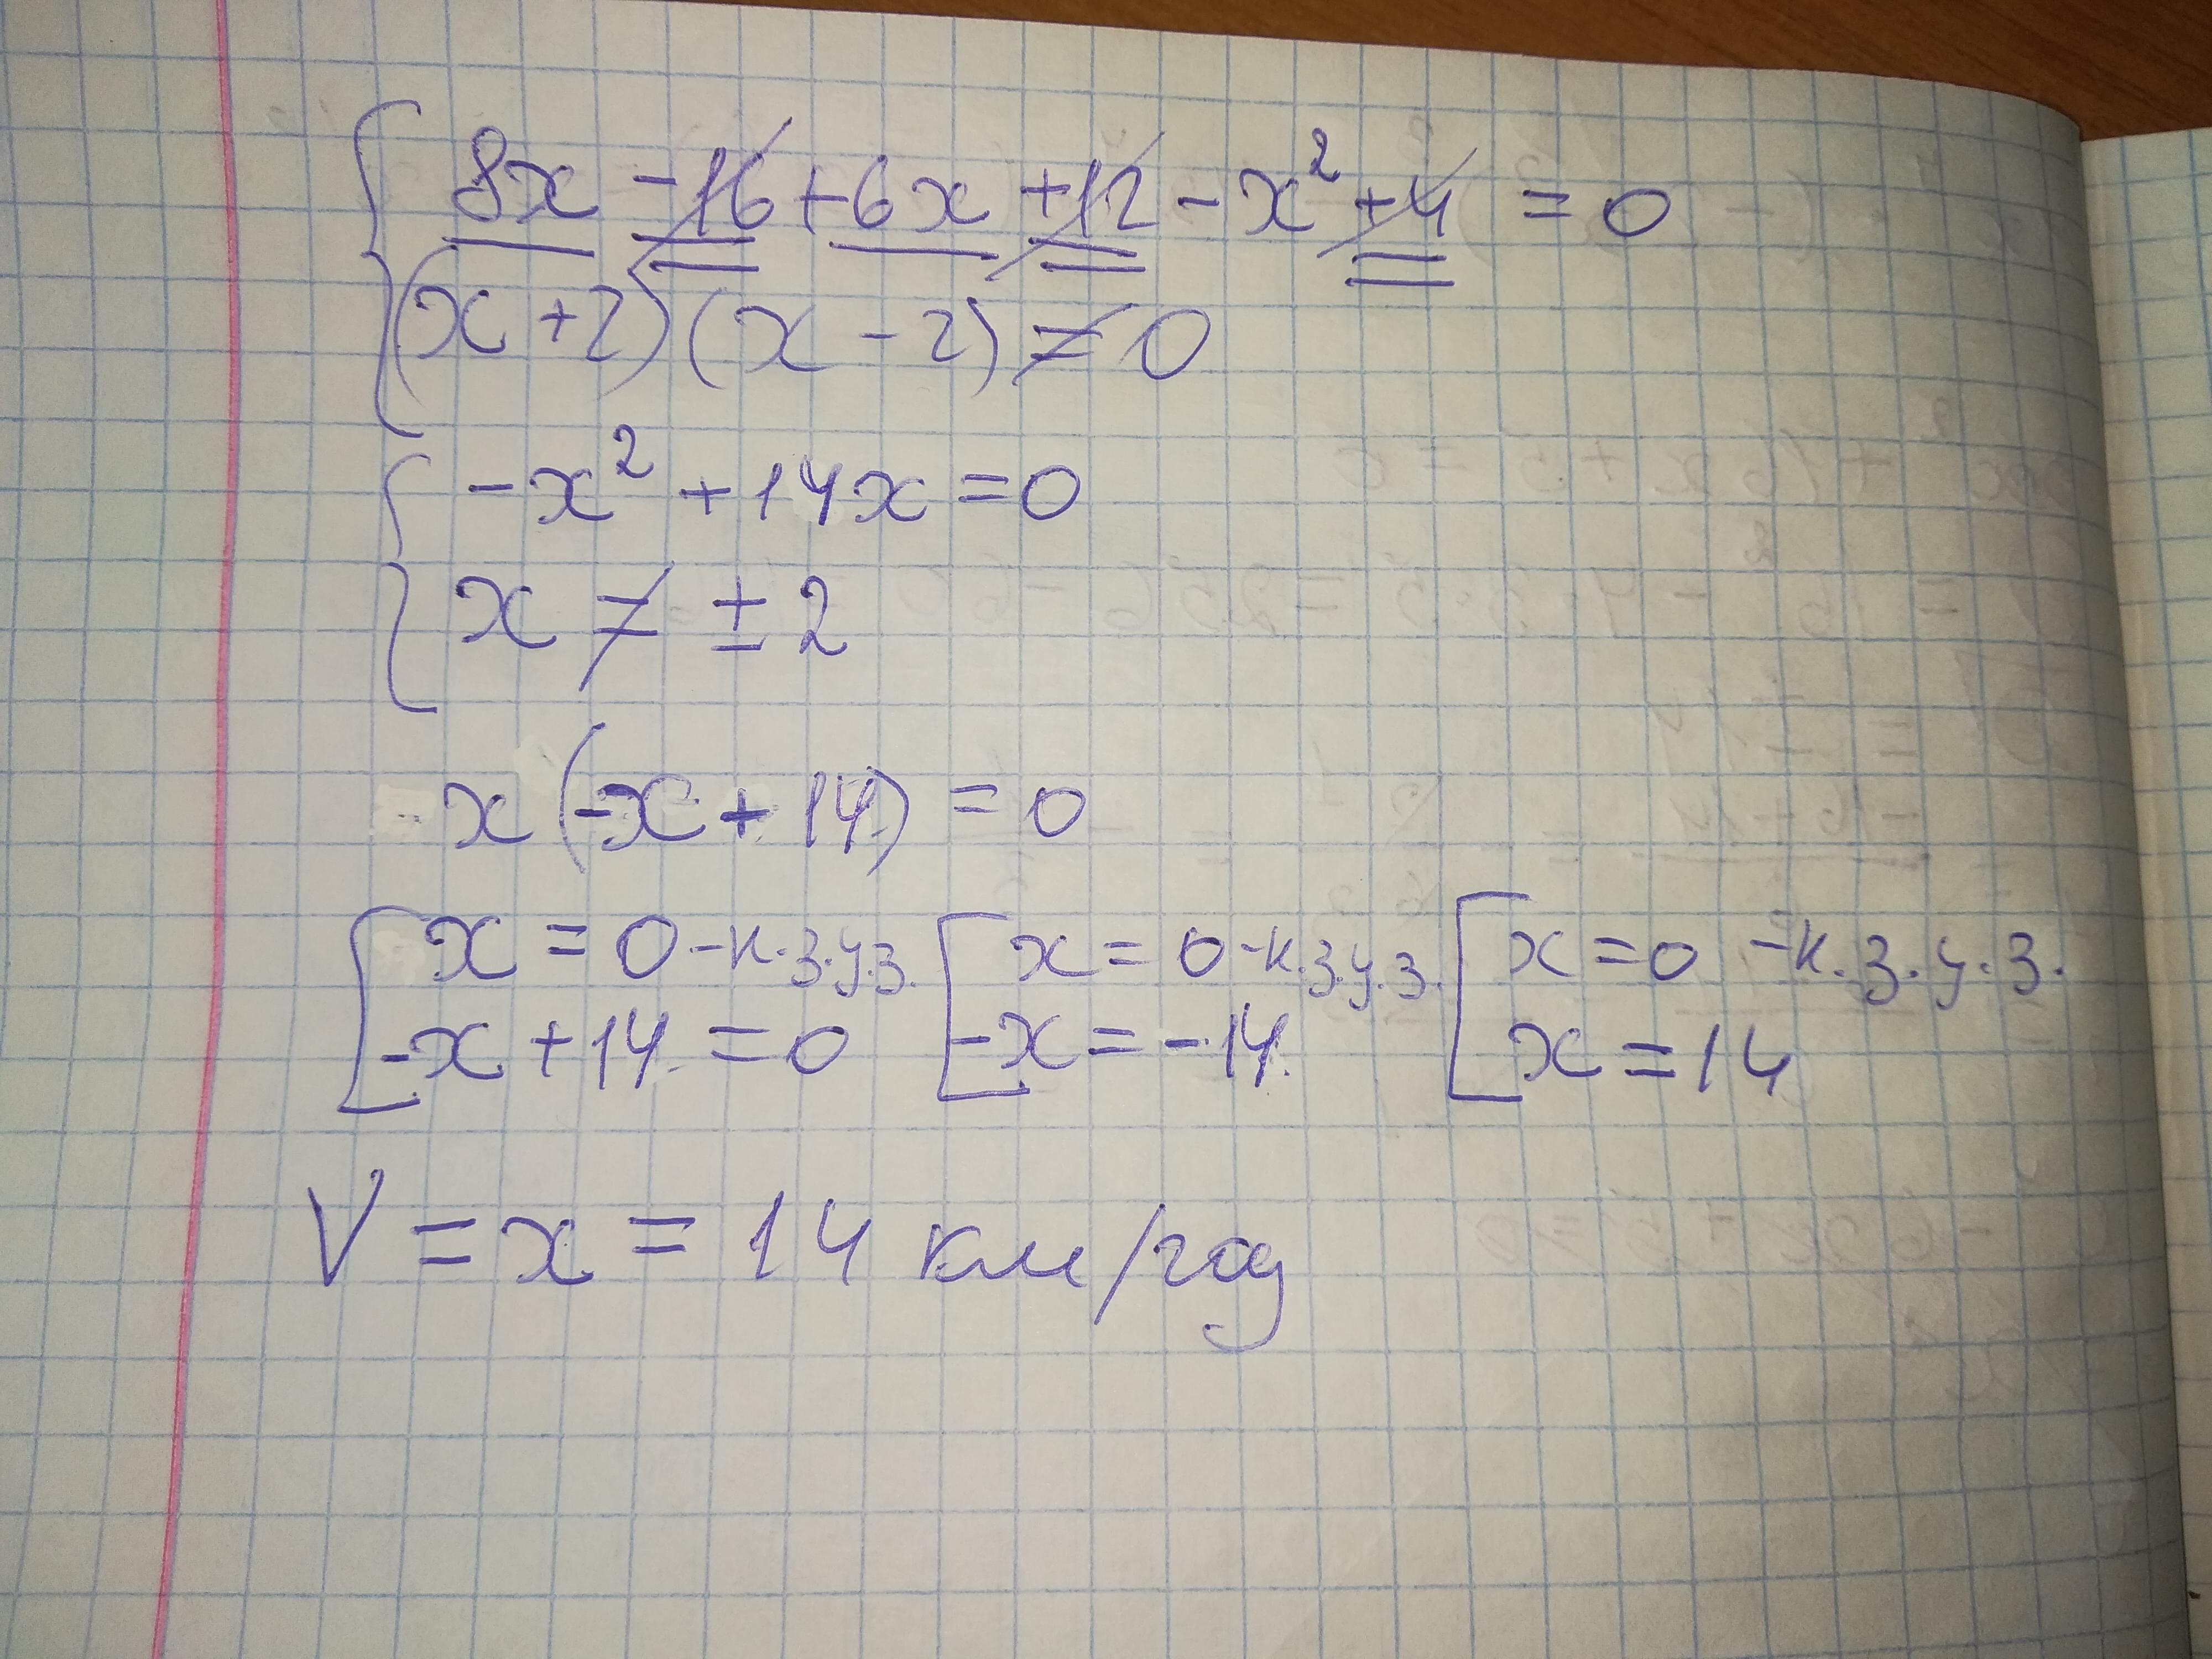 8x - 16 + 6x + 12 - x² + 4 = 0
(x + 2)(x - 2) ≠ 0
-x² + 14x = 0
x ≠ ± 2
x(-x + 14) = 0
x = 0 - к.з.у.з. x = 0 - к.з.у.з. x = 0 - к.з.у.з.
-x + 14 = 0 -x = -14 x = 14
V = x = 14 км/год